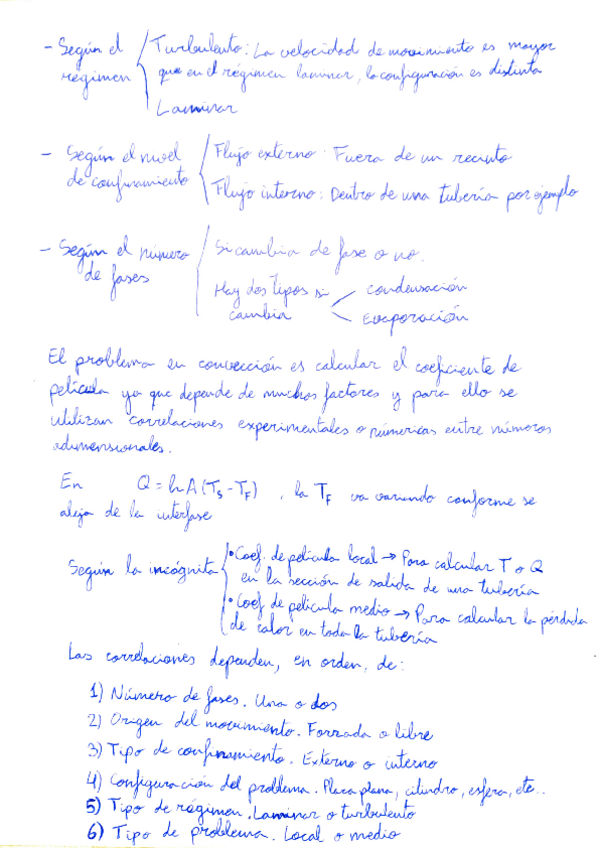 - Según el régimen
Turbulento: La velocidad de movimiento es mayor
que en el régimen laminar, la configuración es distinta
Laminar
- Según el nivel
de confinamiento
Flujo externo: Fuera de un recinto
Flujo interno: Dentro de una tubería por ejemplo
- Según el número
de fases
Si cambia de fase o no.
Hay dos tipos si
cambia
condensación
Evaporación
El problema en convección es calcular el coeficiente de
película ya que depende de muchos factores y para ello se
utilizan correlaciones experimentales o númericas entre números
adimensionales.
En Q = hA(Ts - TF) , la TF va variando conforme se
aleja de la interfase
Según la incógnita
• Coef. de película local → Para calcular T o Q
en la sección de salida de una tubería
• Coef de película medio → Para calcular la pérdida
de calor en toda la tubería
Las correlaciones dependen, en orden, de:
1) Número de fases. Una o dos
2) Origen del movimiento. Forzada o libre
3) Tipo de confinamiento. Externo o interno
4) Configuración del problema. Placa plana, cilindro, esfera, etc..
5) Tipo de régimen. Laminar o turbulento
6) Tipo de problema. Local o medio